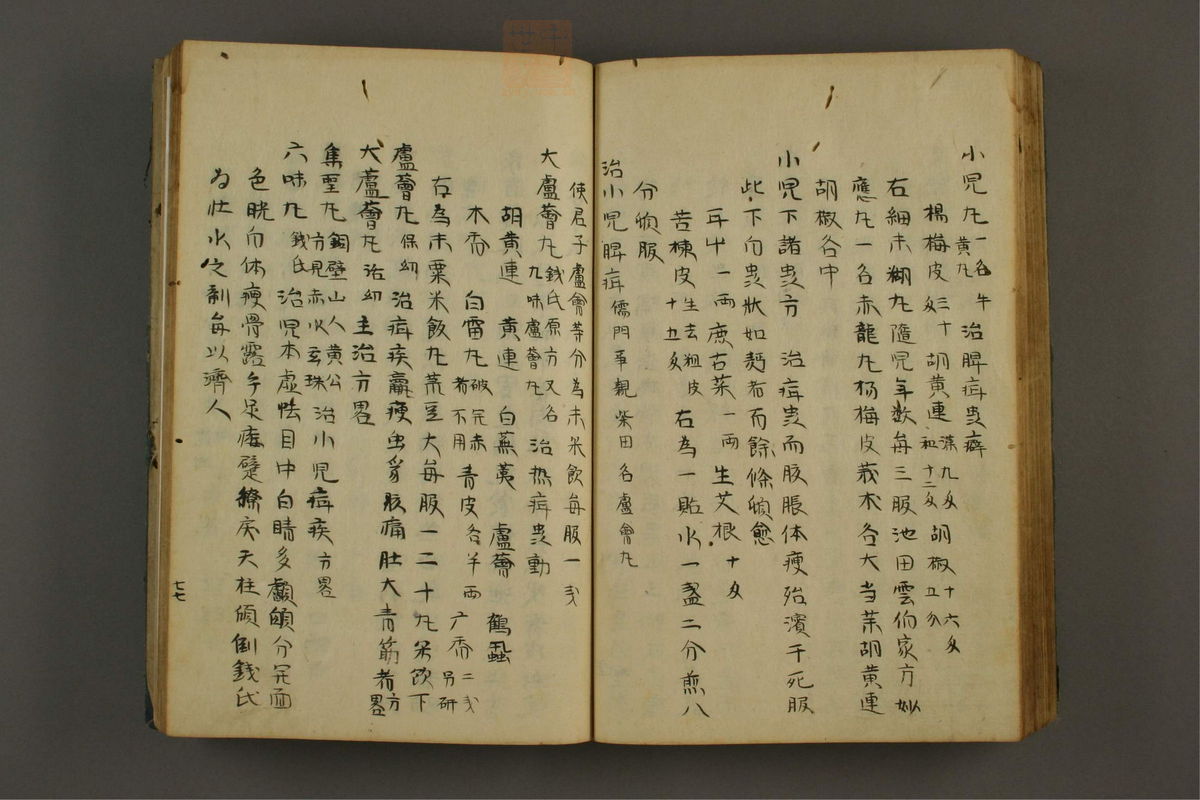 小児丸一名黄丸 牛 治脾疳虫癖
楊梅皮三十匁 胡黄連 胡椒十六匁
右細末糊丸隨児年数毎三服池田雲伯家方妙
應丸一名赤龍丸杨梅皮莪朮各大当茉胡黄連
胡椒各中
小児下諸虫方 治疳虫而腹脹体痩殆濱于死服
此下白虫状如麪者而餘條頓愈
一両 一両 生艾根十匁
苦楝皮生去粗皮十五匁 右為一貼水一盞二分煎八
分頓服
治小児脾疳儒門事親柴田名盧會丸
使君子盧會等分為末米飲毎服一戋
大盧薈丸銭氏原方又名九味盧薈丸 治热疳虫動
胡黄連 黄連 白蕪荑 盧薈 鶴蝨
木香 白雷丸破完赤者不用 青皮各半両 广香二戋另研
右為末粟米飯丸菉豆大毎服一二十丸米飲下
盧薈丸保幼 治疳疾羸痩虫 腹痛肚大青筋者方畧
大蘆薈丸治幼 主治方畧
集聖丸銅壁山人黄公方見赤水玄珠 治小児疳疾方畧
六味丸銭氏 治児本虚怯目中白睛多顱䪿分完面
色㿠白体痩骨露手足痿躄 戻天柱傾倒銭氏
為壮水之剤毎以濟人
七七